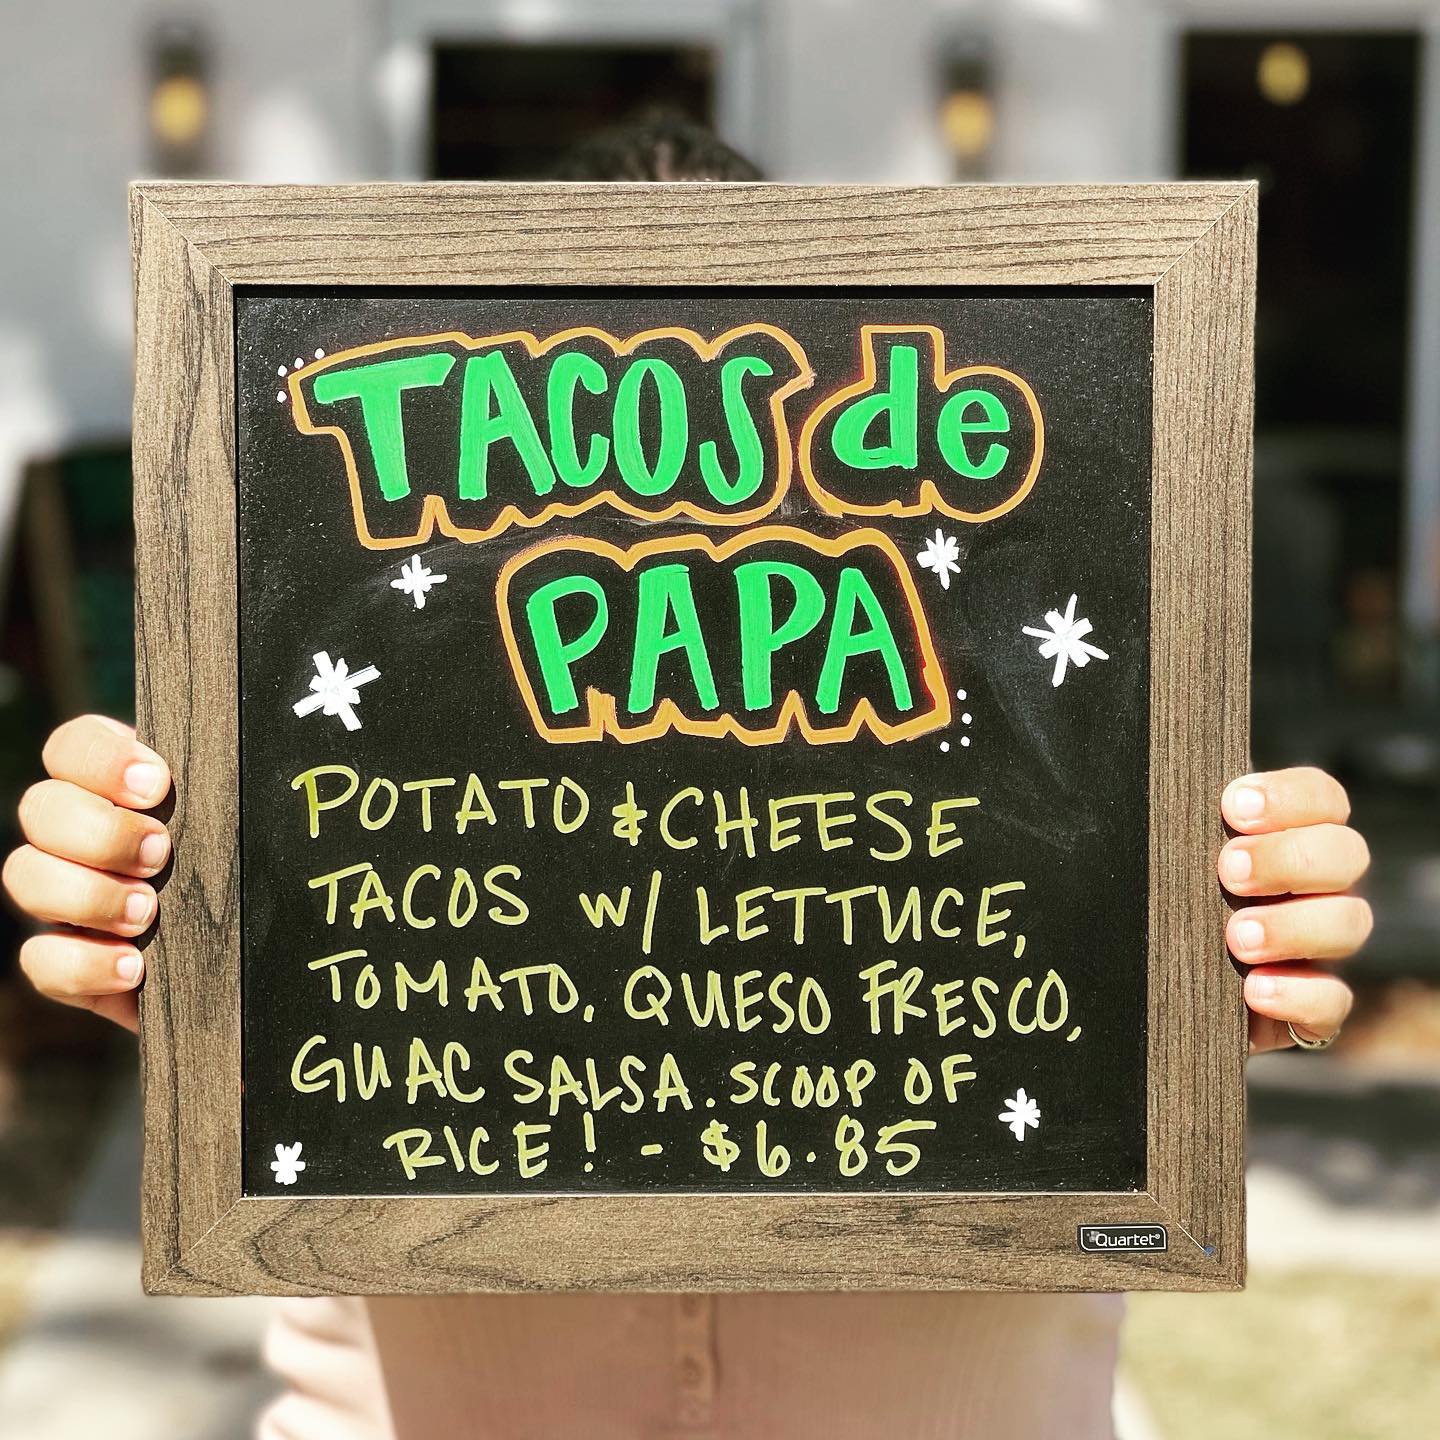 TACOS de
PAPA
POTATO & CHEESE
TACOS W/ LETTUCE,
TOMATO, QUESO FRESCO,
GUAC SALSA. SCOOP OF
RICE! - $6.85
Quartet